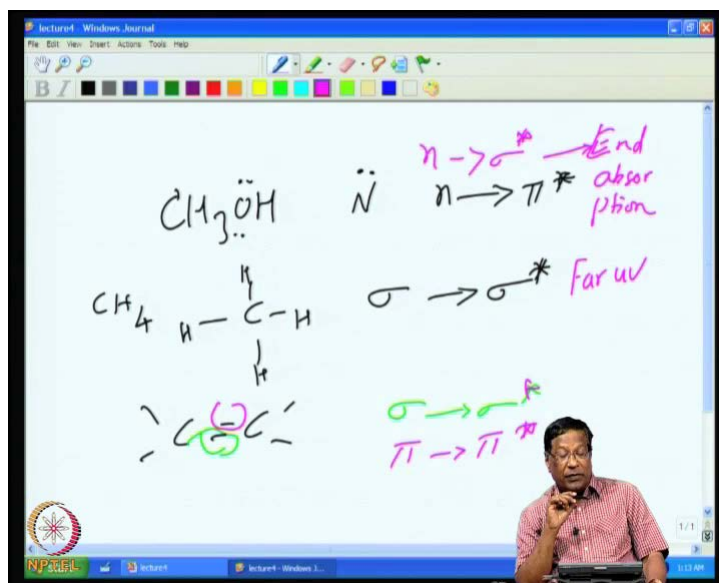 lecture4 - Windows Journal
File Edit View Insert Actions Tools Help
B I
n -> σ* -> End
absor
ption
CH3ÖH N̈ n -> π*
CH4
H
H - C - H
H
σ -> σ* Far uv
C = C
σ -> σ*
π -> π*
1/1
NPTEL
start
lecture4
lecture4 - Windows J...
1:13 AM